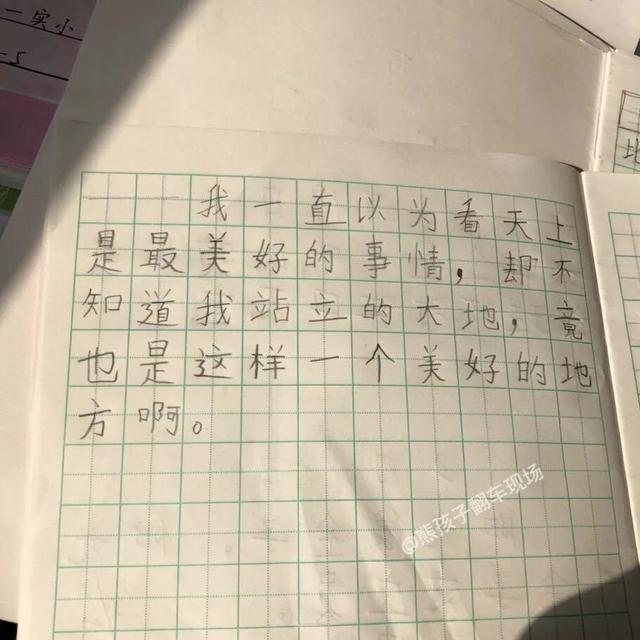 二实小
我一直以为看天上
是最美好的事情，却不
知道我站立的大地，竟
也是这样一个美好的地
方啊。
@熊孩子翻车现场